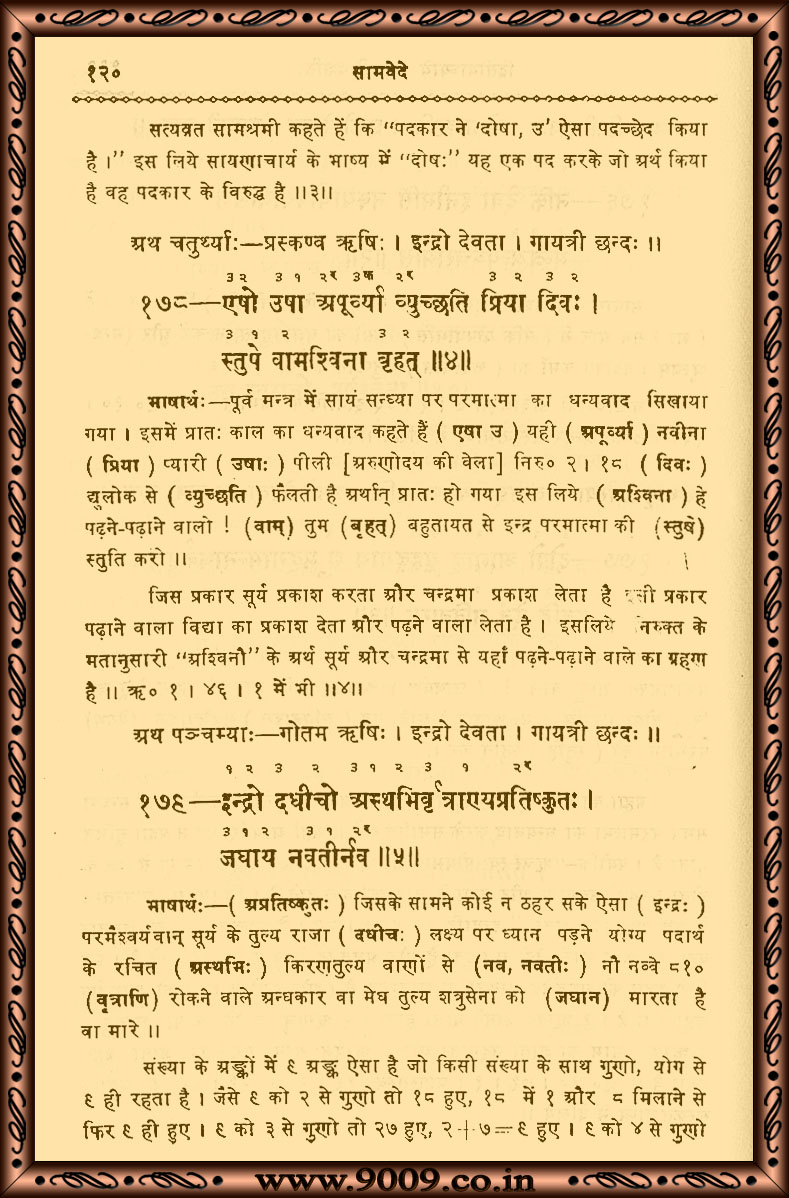 १२०
सामवेदे
सत्यव्रत सामश्रमी कहते हैं कि “पदकार ने ‘दोषा, उ’ ऐसा पदच्छेद किया
है ।” इस लिये सायणाचार्य के भाष्य में “दोषः” यह एक पद करके जो अर्थ किया
है वह पदकार के विरुद्ध है ॥३॥
अथ चतुर्थ्याः—प्रस्कण्व ऋषिः । इन्द्रो देवता । गायत्री छन्दः ॥
३२ ३ १ २र ३क २र ३ २ ३ २
१७८—एषो उषा अपूर्व्या व्युच्छति प्रिया दिवः ।
३ १ २ ३ २
स्तुषे वामश्विना बृहत् ॥४॥
भाषार्थः—पूर्व मन्त्र में सायं सन्ध्या पर परमात्मा का धन्यवाद सिखाया
गया । इसमें प्रातः काल का धन्यवाद कहते हैं ( एषा उ ) यही ( अपूर्व्या ) नवीना
( प्रिया ) प्यारी ( उषाः ) पीली [अरुणोदय की वेला] निरु० २ । १८ ( दिवः )
द्युलोक से ( व्युच्छति ) फैलती है अर्थात् प्रातः हो गया इस लिये ( अश्विना ) हे
पढ़ने-पढ़ाने वालो ! (वाम्) तुम (बृहत्) बहुतायत से इन्द्र परमात्मा की (स्तुषे)
स्तुति करो ॥
जिस प्रकार सूर्य प्रकाश करता और चन्द्रमा प्रकाश लेता है इसी प्रकार
पढ़ाने वाला विद्या का प्रकाश देता और पढ़ने वाला लेता है । इसलिये निरुक्त के
मतानुसारी “अश्विनौ” के अर्थ सूर्य और चन्द्रमा से यहाँ पढ़ने-पढ़ाने वाले का ग्रहण
है ॥ ऋ० १ । ४६ । १ में भी ॥४॥
अथ पञ्चम्याः—गोतम ऋषिः । इन्द्रो देवता । गायत्री छन्दः ॥
१ २ ३ २ ३ १ २ ३ १ २र
१७९—इन्द्रो दधीचो अस्थभिर्वृत्राण्यप्रतिष्कुतः ।
३ १ २ ३ १ २र
जघाय नवतीर्नव ॥५॥
भाषार्थः—( अप्रतिष्कुतः ) जिसके सामने कोई न ठहर सके ऐसा ( इन्द्रः )
परमैश्वर्यवान् सूर्य के तुल्य राजा ( दधीचः ) लक्ष्य पर ध्यान पड़ने योग्य पदार्थ
के रचित ( अस्थभिः ) किरणतुल्य वाणों से (नव, नवतीः ) नौ नव्वे ८१०
(वृत्राणि) रोकने वाले अन्धकार वा मेघ तुल्य शत्रुसेना को (जघान) मारता है
वा मारे ॥
संख्या के अङ्कों में ९ अङ्क ऐसा है जो किसी संख्या के साथ गुणो, योग से
९ ही रहता है । जैसे ९ को २ से गुणो तो १८ हुए, १८ में १ और ८ मिलाने से
फिर ९ ही हुए । ९ को ३ से गुणो तो २७ हुए, २+७=९ हुए । ९ को ४ से गुणो
www.9009.co.in